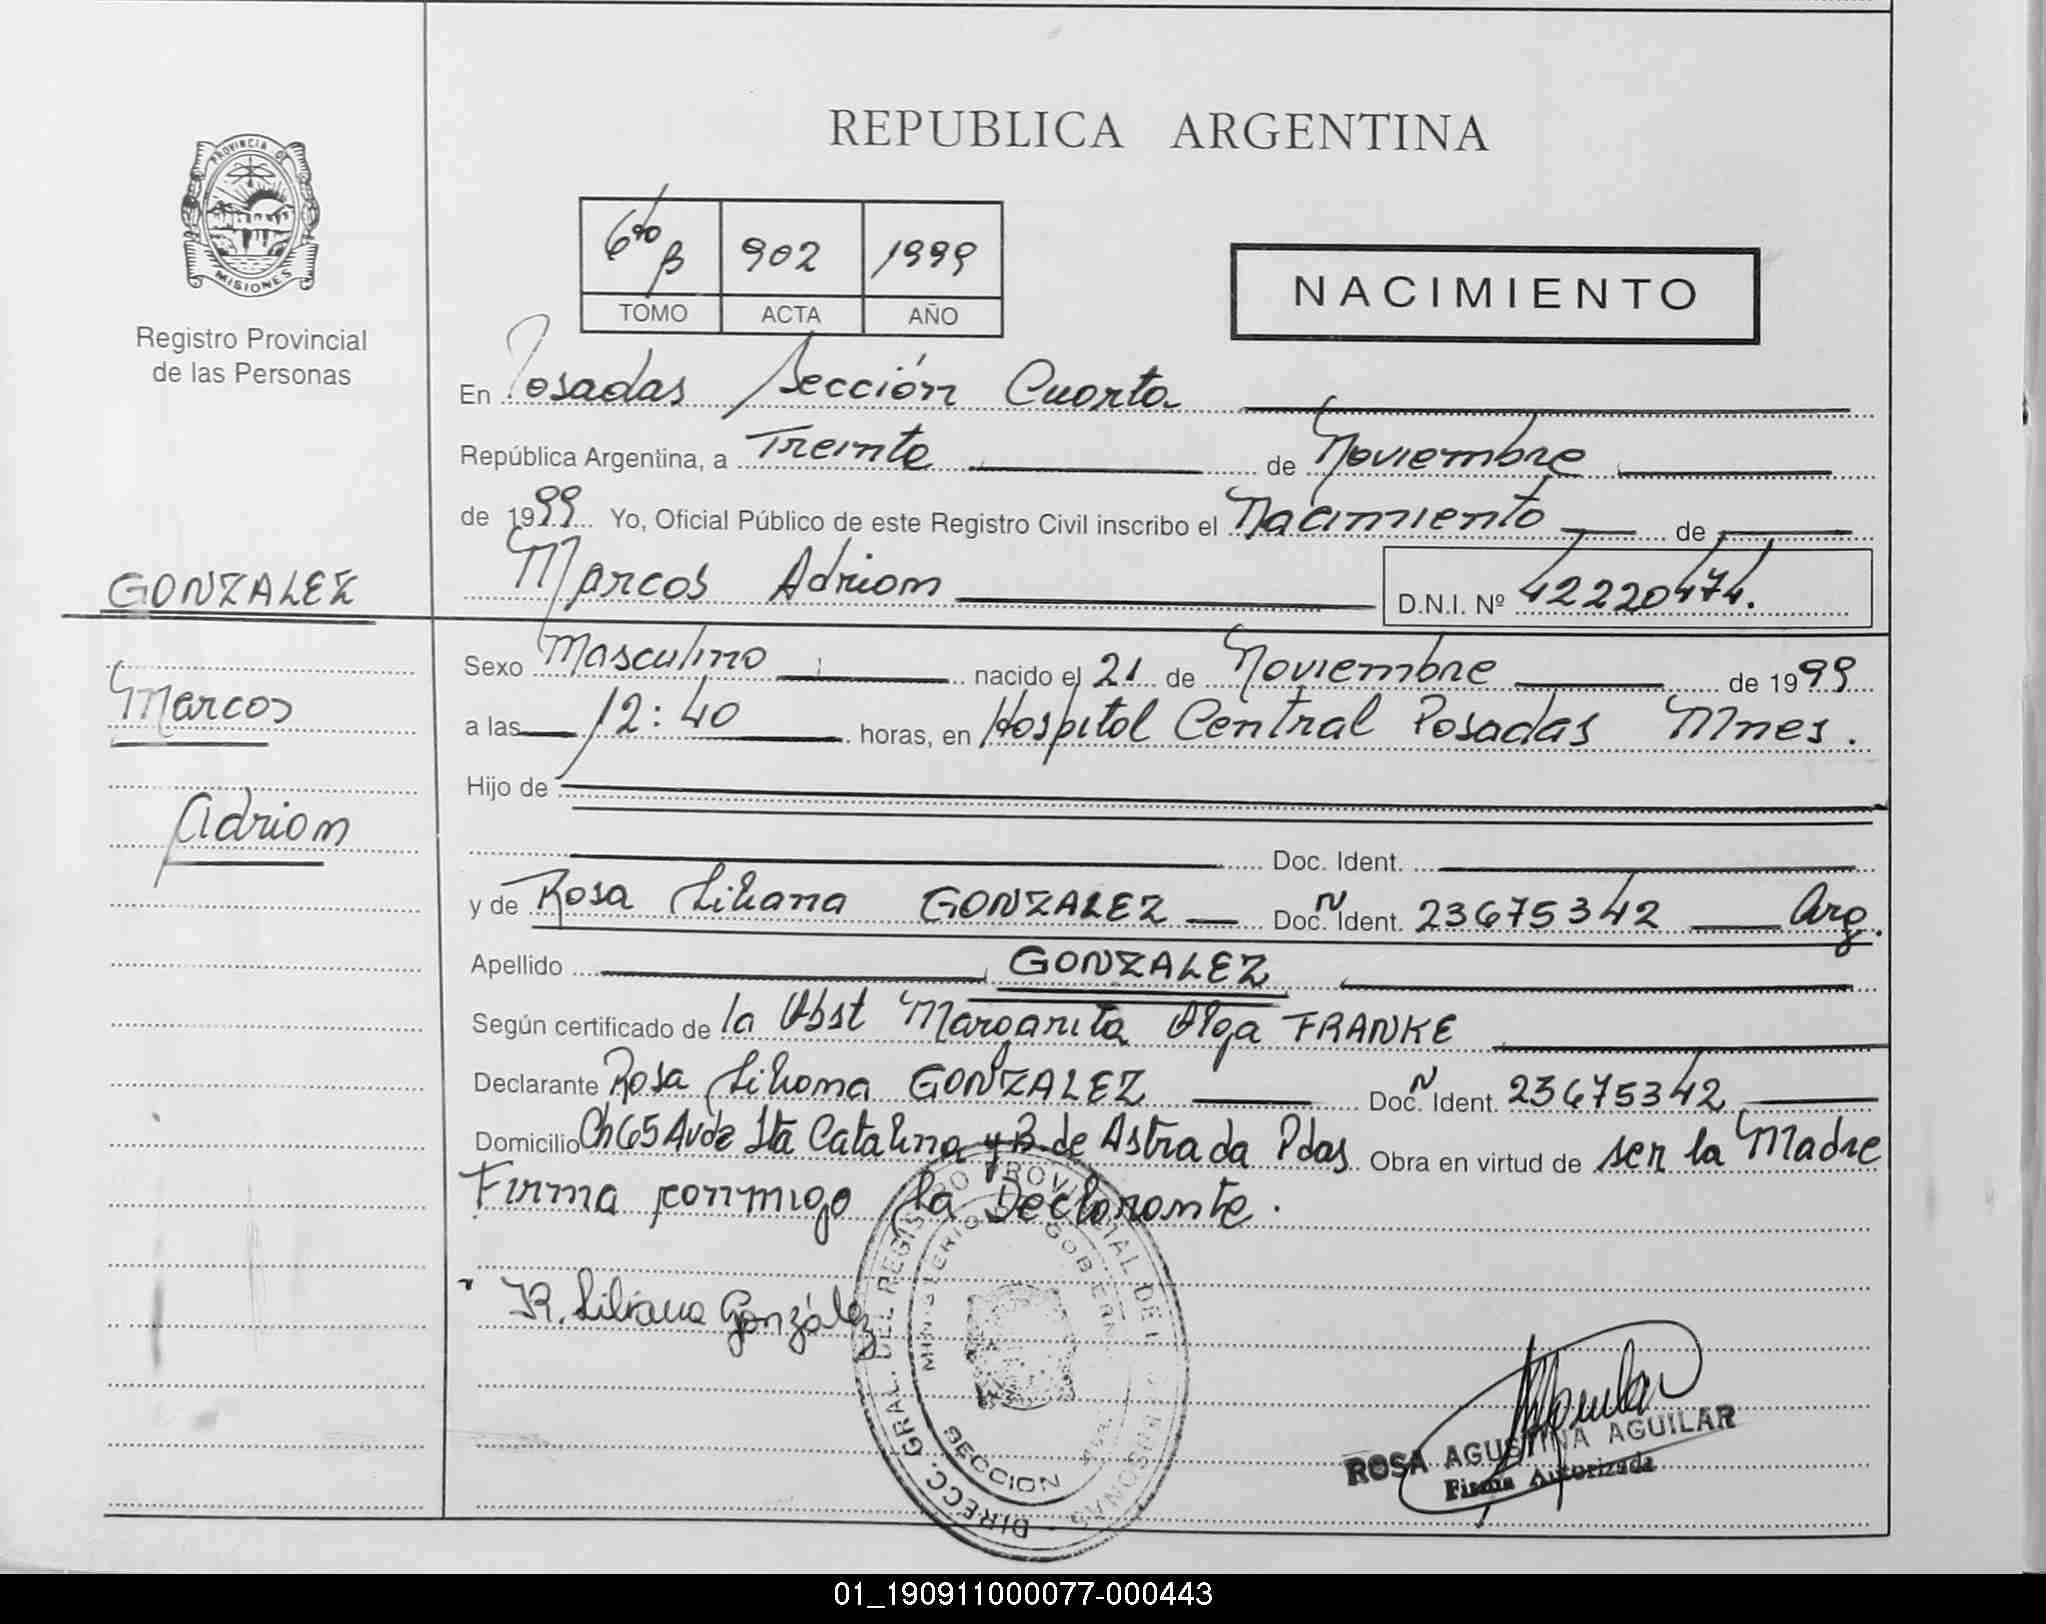 REPUBLICA ARGENTINA
PROVINCIA DE
MISIONES
Registro Provincial
de las Personas
6to B 902 1999
TOMO ACTA AÑO
NACIMIENTO
En Posadas Sección Cuarta
República Argentina, a Treinta de Noviembre
de 1999 Yo, Oficial Público de este Registro Civil inscribo el Nacimiento de
GONZALEZ
Marcos Adrian D.N.I. Nº 42220474.
Marcos
Adrian
Sexo Masculino nacido el 21 de Noviembre de 1999
a las 12:40 horas, en Hospital Central Posadas Mnes.
Hijo de
Doc. Ident.
y de Rosa Liliana GONZALEZ Doc. N Ident. 23675342 Arg.
Apellido GONZALEZ
Según certificado de la Obst Margarita Olga FRANKE
Declarante Rosa Liliana GONZALEZ Doc. N Ident. 23675342
Domicilio Ch 65 Avda Sta Catalina y B. de Astrada Pdas Obra en virtud de ser la Madre
Firma conmigo la Declarante.
R. Liliana González
DIRECC. GRAL. DEL REGISTRO PROVINCIAL DE LAS PERSONAS
MINISTERIO GOBIERNO
SECCION
Aguilar
ROSA AGUSTINA AGUILAR
Firma Autorizada
01_190911000077-000443